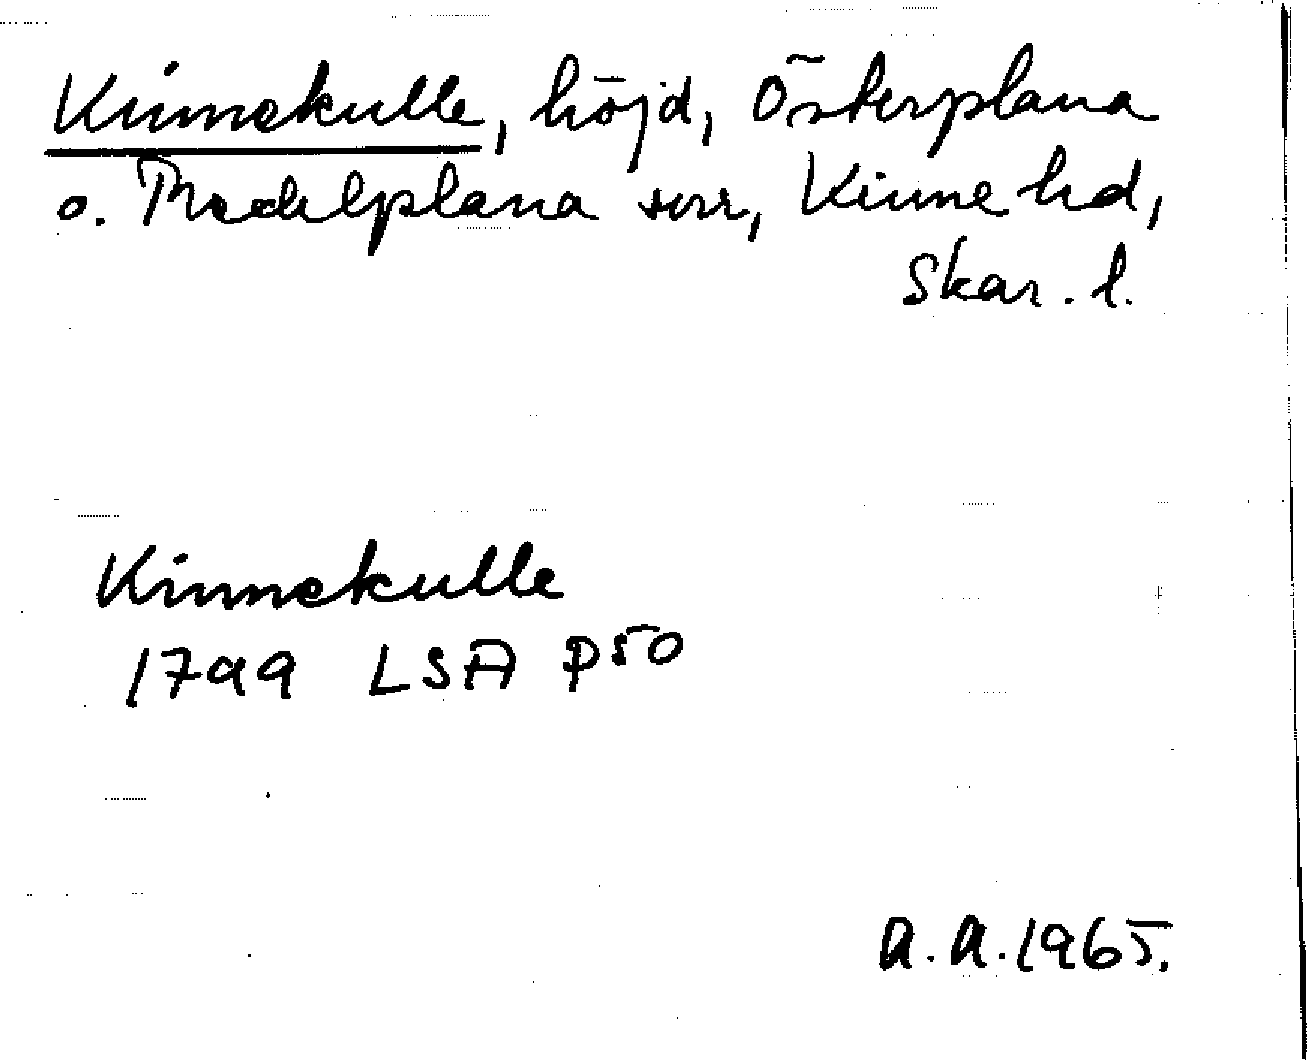 Kinnekulle, höjd, Österplana
o. Medelplana snr, Kinne hd,
Skar. l.
Kinnekulle
1799 LSA P50
A. A. 1965.